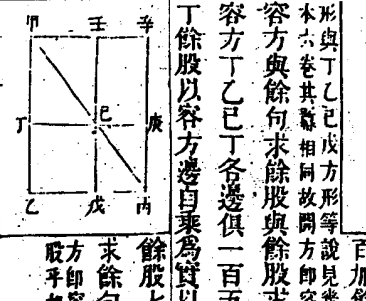 百加
形與丁乙己戊方形等說見幾
本六卷其數相同故開方即容
容方與餘句求餘股與餘股求
容方丁乙己丁各邊俱一百五
丁餘股以容方邊自乘爲實以
甲 壬 辛
丁 己 庚
乙 戊 丙
餘股
求餘句
方即容
股平